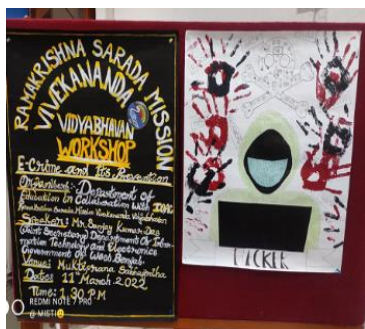 RAMAKRISHNA SARADA MISSION
VIVEKANANDA
VIDYABHAVAN
WORKSHOP
E-Crime and Its Prevention
Organiser:- Department of
Education in Collaboration with IQAC
Ramakrishna Sarada Mission Vivekananda Vidyabhavan
Speaker: Mr. Sanjay Kumar Das
Joint Secretary, Department of Infor-
mation Technology and Electronics
Government of West Bengal
Venue:
Date: 11 March 2022
Time: 1.30 PM
HACKER
REDMI NOTE 7 PRO
MISTI